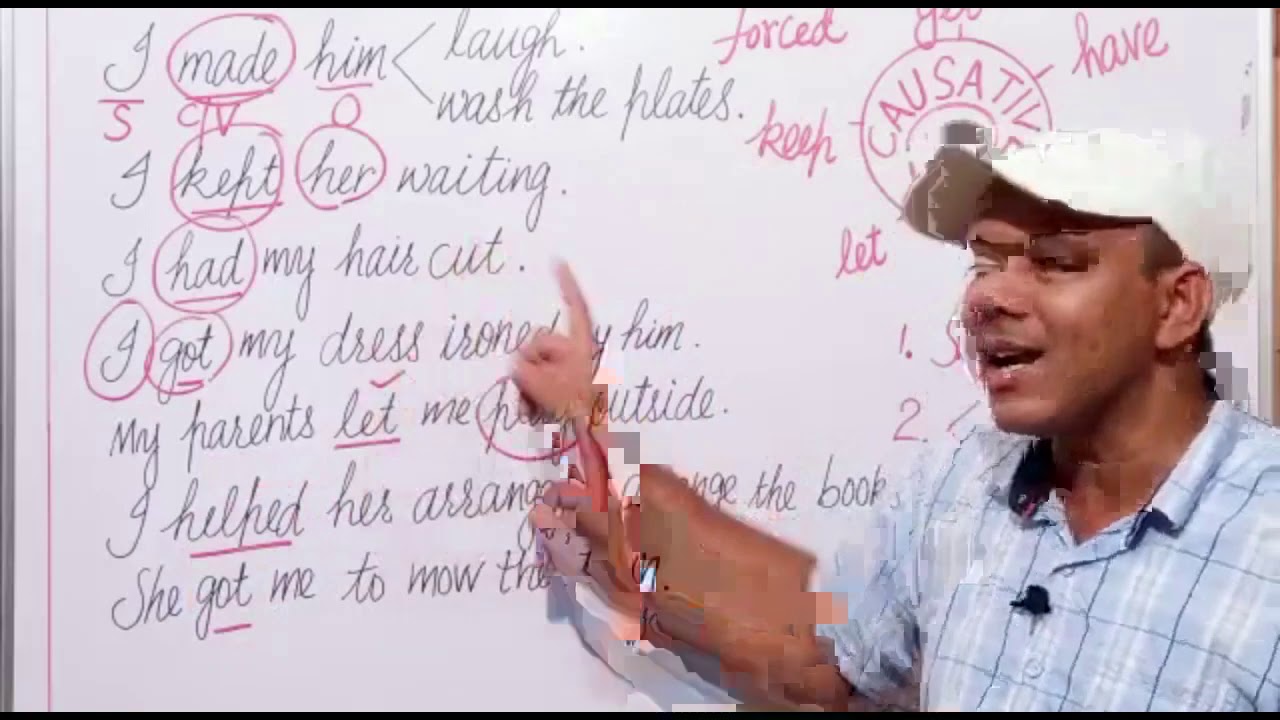 I made him laugh.
wash the plates.
S CV O
I kept her waiting.
I had my hair cut.
I got my dress ironed by him.
My parents let me play outside.
I helped her arrange the book
She got me to mow the
forced
get
have
CAUSATIVE
keep
let
1.
2.